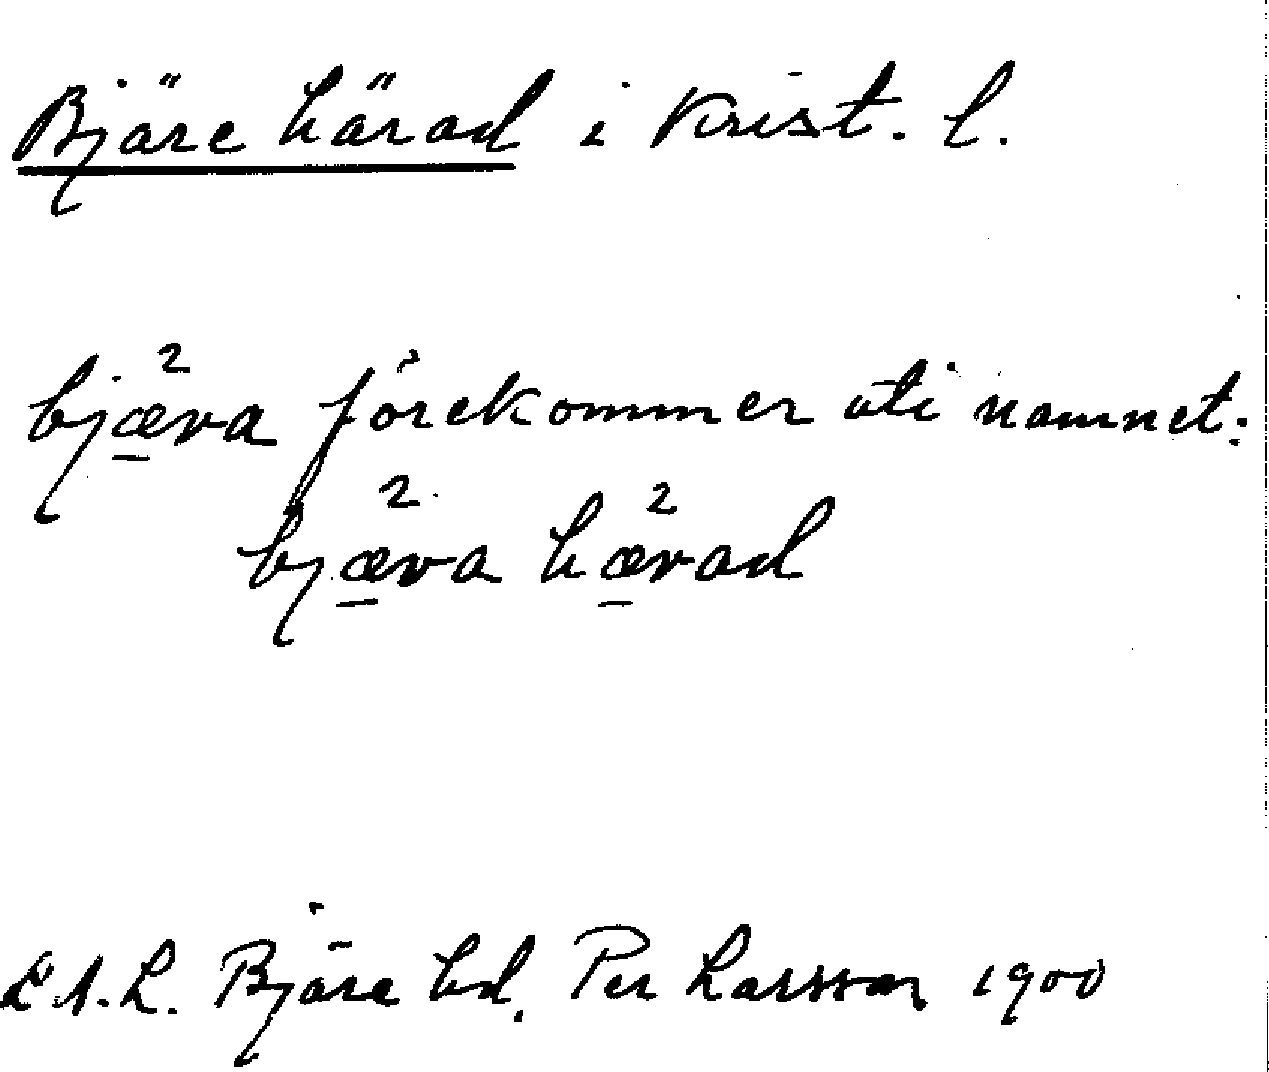 Bjäre härad i Krist. l.
bjæ²ra förekommer uti namnet:
bjæ²ra hæ²rad
L.A.L. Bjäre hd. Per Larsson 1900